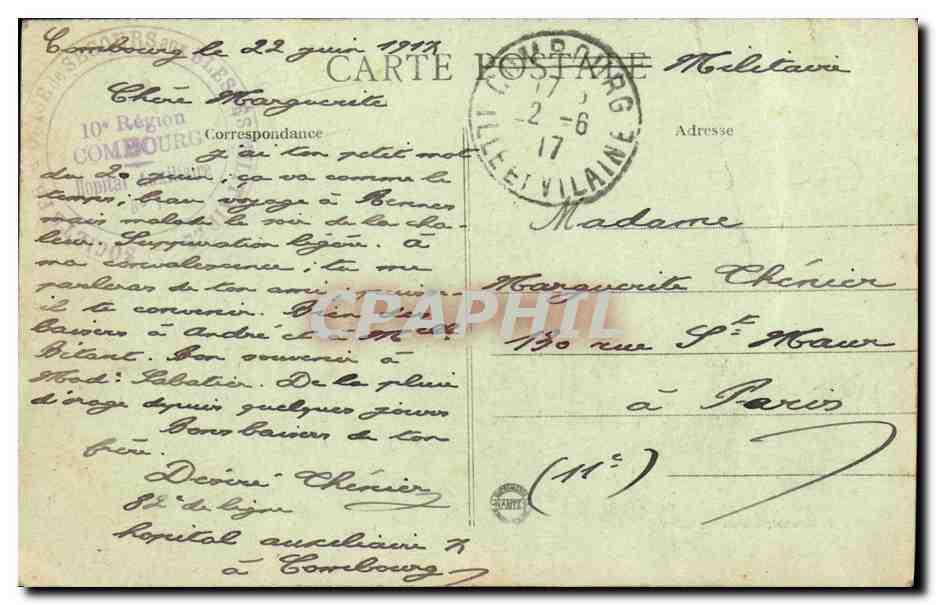 Combourg le 22 juin 1917
CARTE POSTALE Militaire
Chère Marguerite
Correspondance
Adresse
J'ai ton petit mot
du 20 juin; ça va comme le
temps; beau voyage à Rennes
mais malade le soir de la cha-
leur. Suppuration légère. À
ma convalescence; tu me
parleras de ton ami
il te convenir. Bien des
baisers à André et à Melle
Bitant. Bon souvenir à
Mad: Sabatier. De la pluie
d'orage depuis quelques jours
Bons baisers de ton
frère.
Désiré Chénier
82e de ligne
hopital auxiliaire 7
à Combourg
Madame
Marguerite Chénier
130 rue St Maur
à Paris
(11e)
COMBOURG
2-6
17
ILLE ET VILAINE
SECOURS aux BLESSÉS
10e Région
COMBOURG
Hopital Auxiliaire
NANTES
CPAPHIL